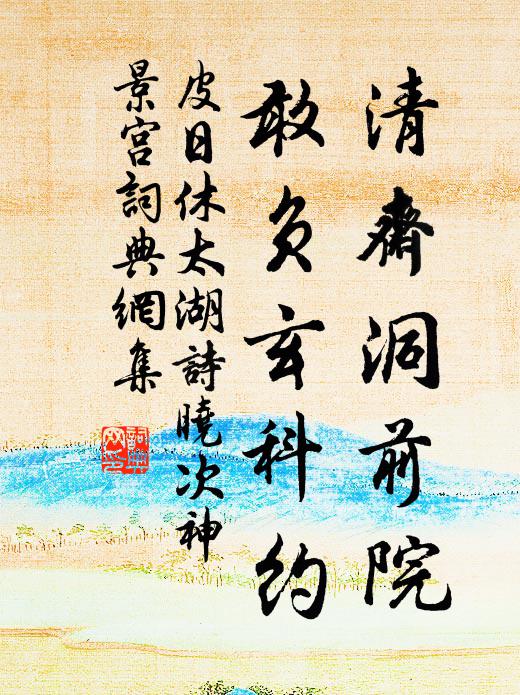 清齋洞前院
敢負玄科約
皮日休太湖詩曉次神
景宮詞典網集